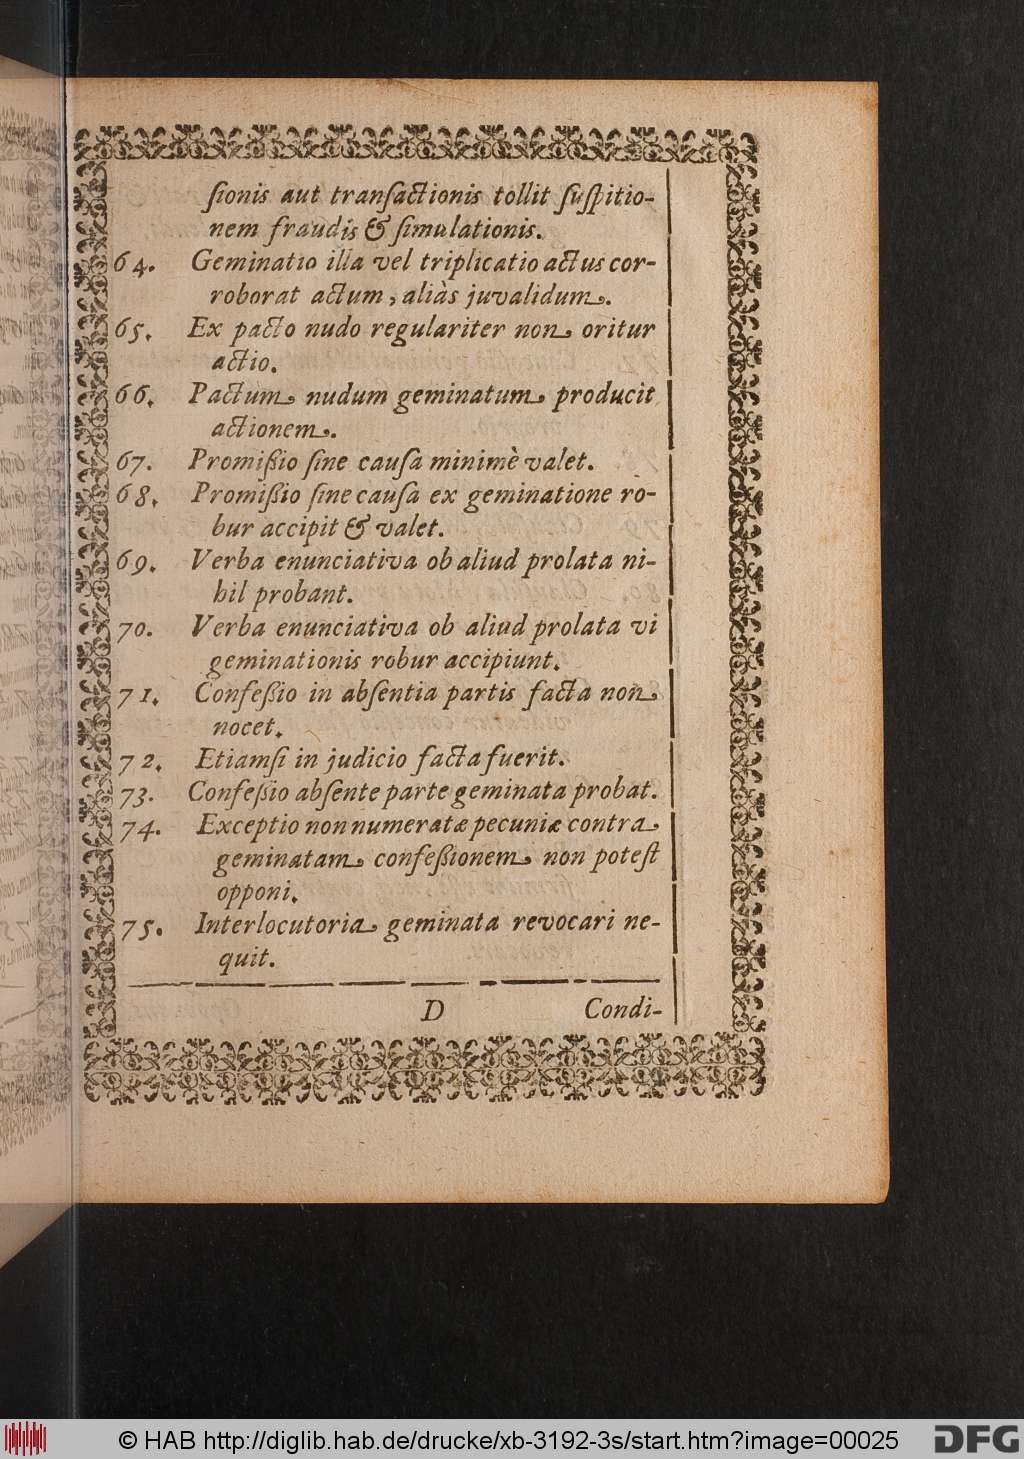 ſionis aut tranſactionis tollit ſuſpitio-
nem fraudis & ſimulationis.
64. Geminatio illa vel triplicatio actus cor-
roborat actum, aliàs juvalidum.
65. Ex pacto nudo regulariter non oritur
actio.
66. Pactum nudum geminatum producit
actionem.
67. Promißio ſine cauſa minimè valet.
68. Promißio ſine cauſa ex geminatione ro-
bur accipit & valet.
69. Verba enunciativa ob aliud prolata ni-
hil probant.
70. Verba enunciativa ob aliud prolata vi
geminationis robur accipiunt.
71. Confeßio in abſentia partis facta non
nocet.
72. Etiamſi in judicio facta fuerit.
73. Confeßio abſente parte geminata probat.
74. Exceptio non numeratæ pecuniæ contra
geminatam confeßionem non poteſt
opponi.
75. Interlocutoria geminata revocari ne-
quit.
D Condi-
© HAB http://diglib.hab.de/drucke/xb-3192-3s/start.htm?image=00025
DFG